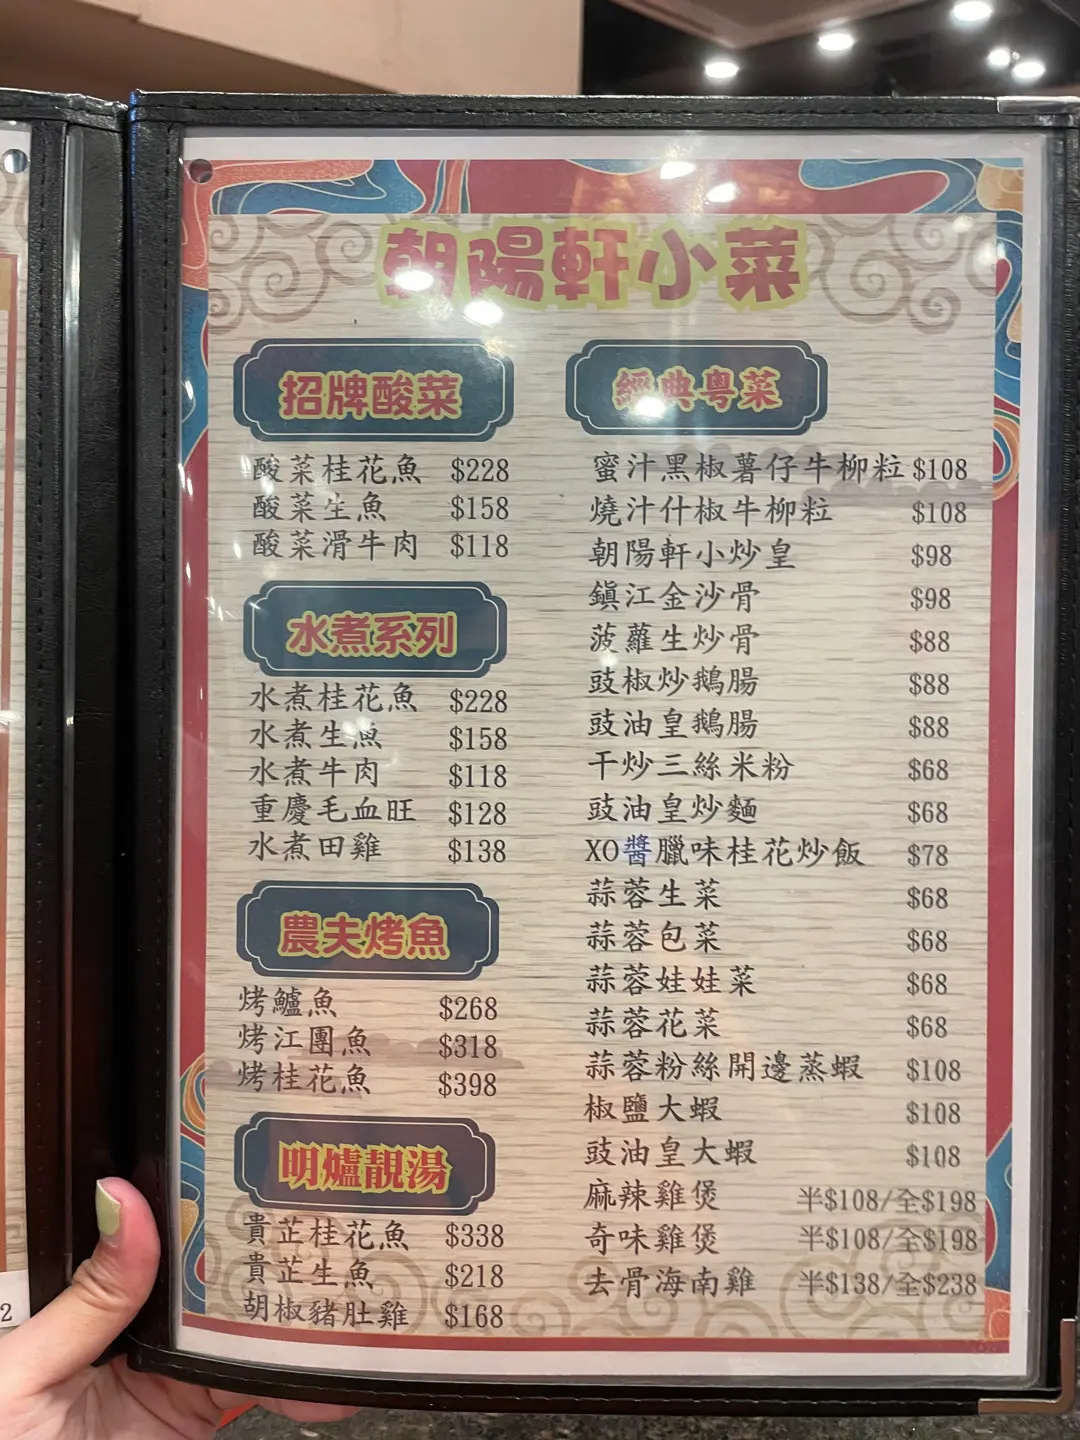 朝陽軒小菜
招牌酸菜
酸菜桂花魚 $228
酸菜生魚 $158
酸菜滑牛肉 $118
水煮系列
水煮桂花魚 $228
水煮生魚 $158
水煮牛肉 $118
重慶毛血旺 $128
水煮田雞 $138
農夫烤魚
烤鱸魚 $268
烤江團魚 $318
烤桂花魚 $398
明爐靚湯
貴芷桂花魚 $338
貴芷生魚 $218
胡椒豬肚雞 $168
經典粵菜
蜜汁黑椒薯仔牛柳粒 $108
燒汁什椒牛柳粒 $108
朝陽軒小炒皇 $98
鎮江金沙骨 $98
菠蘿生炒骨 $88
豉椒炒鵝腸 $88
豉油皇鵝腸 $88
干炒三絲米粉 $68
豉油皇炒麵 $68
XO醬臘味桂花炒飯 $78
蒜蓉生菜 $68
蒜蓉包菜 $68
蒜蓉娃娃菜 $68
蒜蓉花菜 $68
蒜蓉粉絲開邊蒸蝦 $108
椒鹽大蝦 $108
豉油皇大蝦 $108
麻辣雞煲 半$108/全$198
奇味雞煲 半$108/全$198
去骨海南雞 半$138/全$238
2